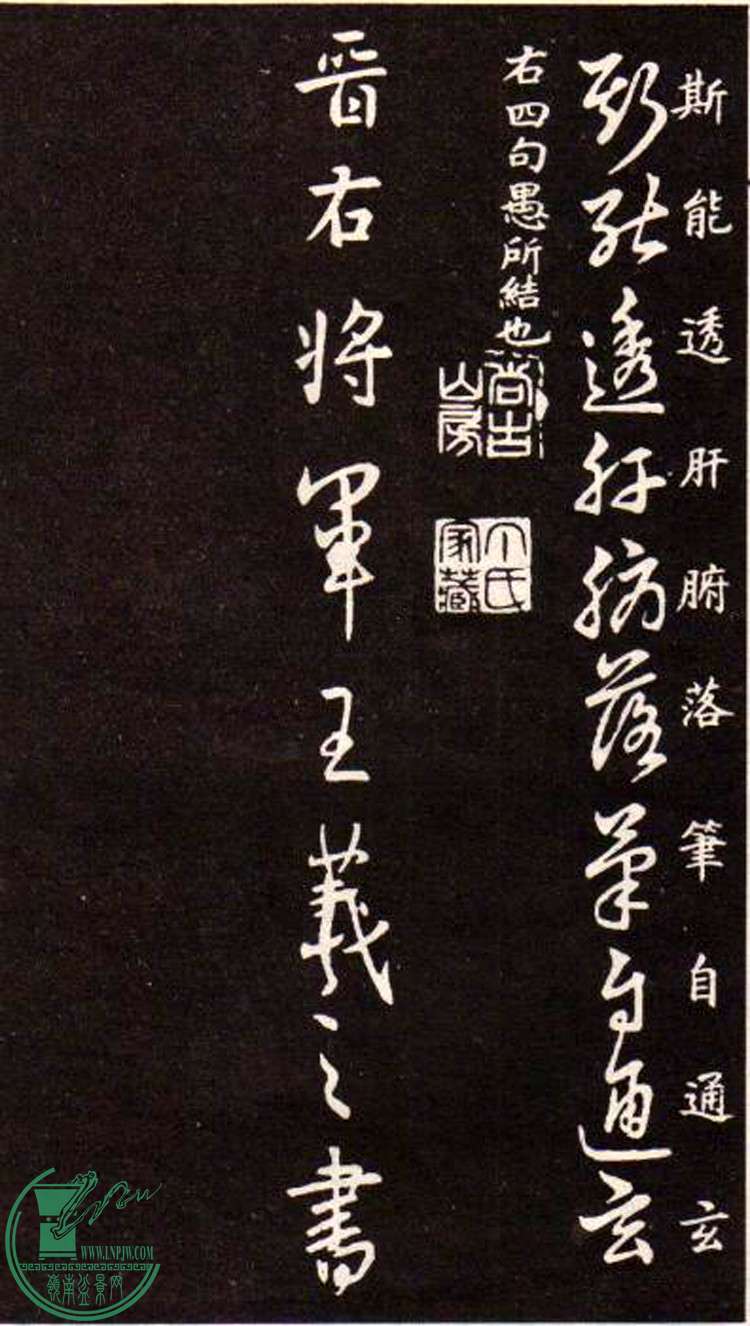 斯能透肝腑落筆自通玄
斯能透肝腑落筆自通玄
右四句愚所結也
尚古山房
卞氏家藏
晉右將軍王羲之書
WWW.LNPJW.COM
嶺南盆景网